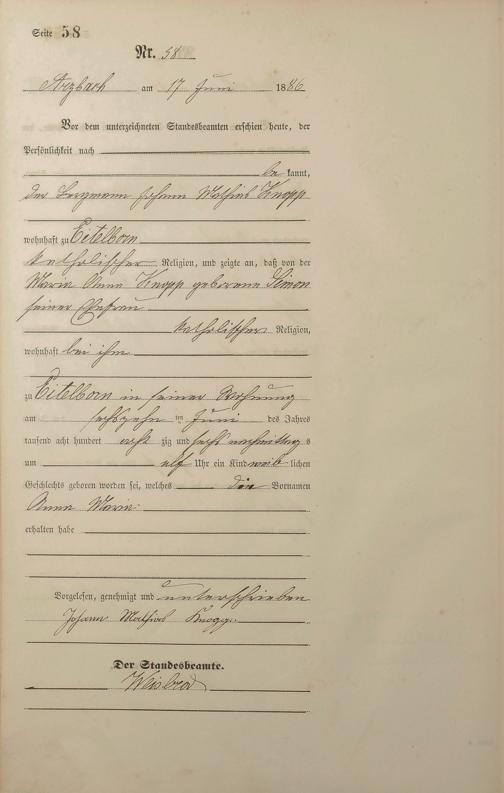 Seite 58
Nr. 58
Arzbach am 17 Juni 1886
Vor dem unterzeichneten Standesbeamten erschien heute, der
Persönlichkeit nach
be kannt,
der Bergmann Johann Mathias Knopp
wohnhaft zu Eitelborn
katholischer Religion, und zeigte an, daß von der
Maria Anna Knopp geborene Simon
seiner Ehefrau
katholischer Religion,
wohnhaft bei ihm
zu Eitelborn in seiner Wohnung
am sechszehn ten Juni des Jahres
tausend acht hundert acht zig und sechs nachmittag s
um elf Uhr ein Kind weib lichen
Geschlechts geboren worden sei, welches die Vornamen
Anna Maria
erhalten habe
Vorgelesen, genehmigt und unterschrieben
Johann Mathias Knopp
Der Standesbeamte.
Weisbrod